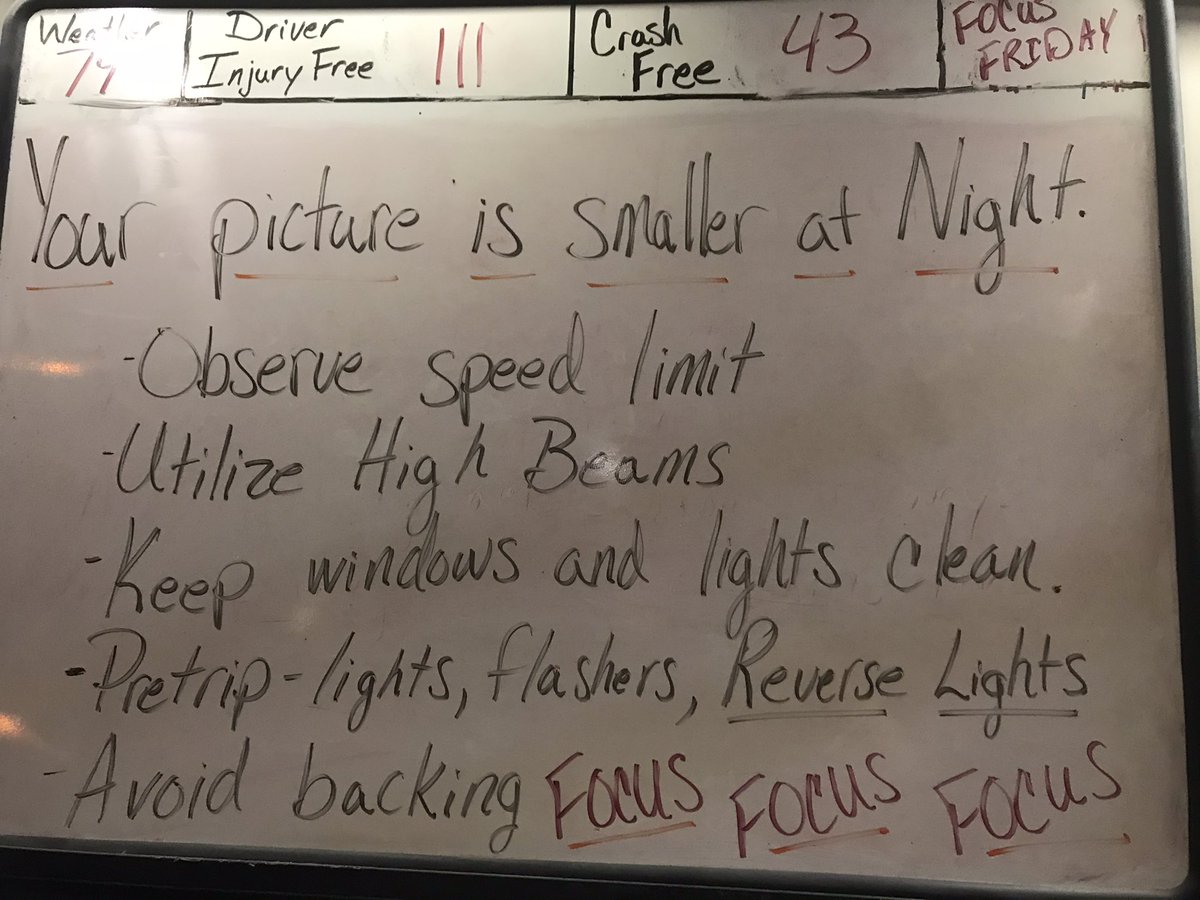 Weather Driver Injury Free 111 Crash Free 43 FOCUS FRIDAY
Your picture is smaller at Night.
-Observe speed limit
-Utilize High Beams
-Keep windows and lights clean.
-Pretrip-lights, flashers, Reverse Lights
-Avoid backing FOCUS FOCUS FOCUS